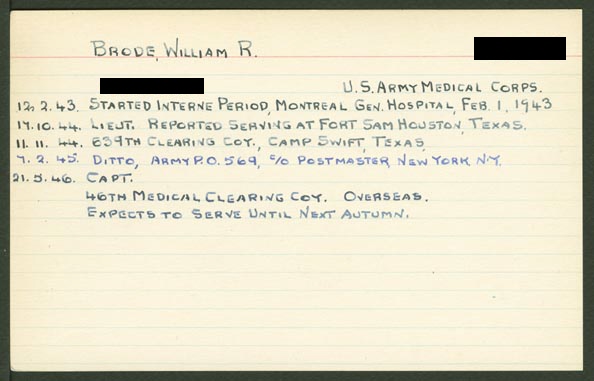 BRODE, WILLIAM R.
U.S. ARMY MEDICAL CORPS.
12.2.43. STARTED INTERNE PERIOD, MONTREAL GEN. HOSPITAL, FEB. 1, 1943
17.10.44. LIEUT. REPORTED SERVING AT FORT SAM HOUSTON, TEXAS.
11.11.44. 639TH CLEARING COY., CAMP SWIFT, TEXAS.
7.2.45. DITTO, ARMY P.O. 569, c/o POSTMASTER, NEW YORK, N.Y.
21.5.46. CAPT.
46TH MEDICAL CLEARING COY. OVERSEAS.
EXPECTS TO SERVE UNTIL NEXT AUTUMN.